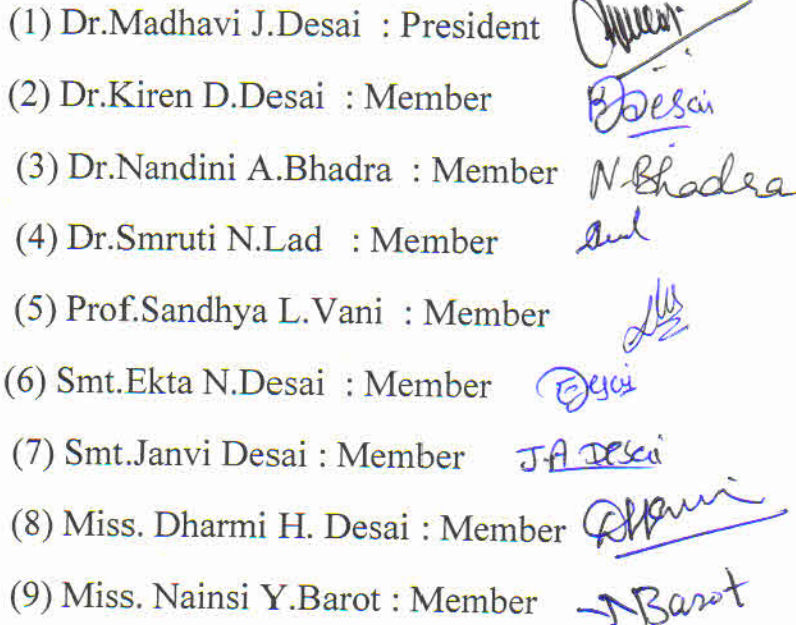 (1) Dr.Madhavi J.Desai : President
(2) Dr.Kiren D.Desai : Member BDesai
(3) Dr.Nandini A.Bhadra : Member N.Bhadra
(4) Dr.Smruti N.Lad : Member
(5) Prof.Sandhya L.Vani : Member
(6) Smt.Ekta N.Desai : Member EDesai
(7) Smt.Janvi Desai : Member J.A Desai
(8) Miss. Dharmi H. Desai : Member
(9) Miss. Nainsi Y.Barot : Member NBarot